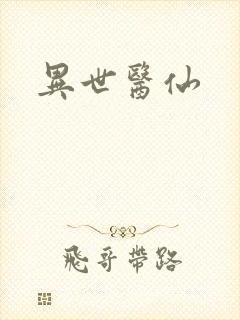 異世醫仙
飛哥帶路